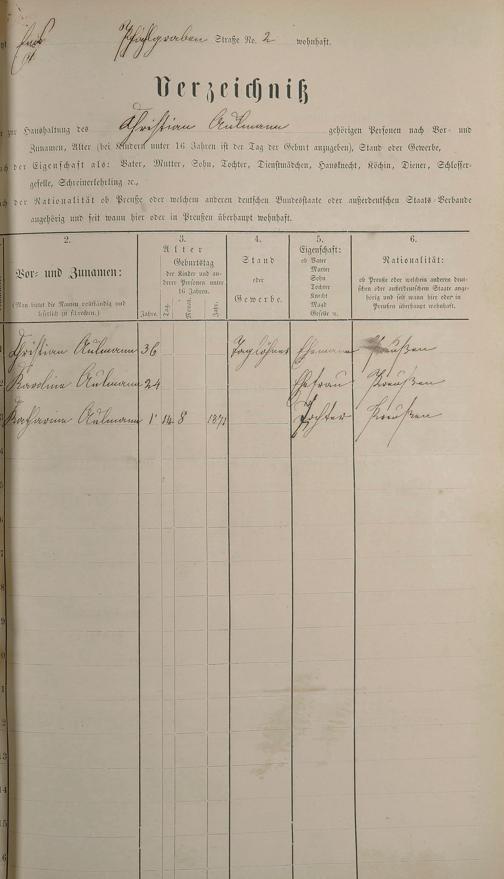 Straße No. 2 wohnhaft.
Verzeichniß
zur Haushaltung des Christian Aulmann gehörigen Personen nach Vor- und
Zunamen, Alter (bei Kindern unter 16 Jahren ist der Tag der Geburt anzugeben), Stand oder Gewerbe,
der Eigenschaft als: Vater, Mutter, Sohn, Tochter, Dienstmädchen, Hausknecht, Köchin, Diener, Schlosser-
geselle, Schreinerlehrling ꝛc.,
der Nationalität ob Preuße oder welchem anderen deutschen Bundesstaate oder außerdeutschen Staats-Verbande
angehörig und seit wann hier oder in Preußen überhaupt wohnhaft.
2. 3. 4. 5. 6.
Vor- und Zunamen:
(Man bittet die Namen vollständig und
leserlich zu schreiben.)
Alter
Geburtstag
der Kinder und an-
derer Personen unter
16 Jahren.
Jahre. Tag. Monat. Jahr.
Stand
oder
Gewerbe.
Eigenschaft:
ob Vater
Mutter
Sohn
Tochter
Knecht
Magd
Geselle ꝛc.
Nationalität:
ob Preuße oder welchem anderen deut-
schen oder außerdeutschen Staate ange-
hörig und seit wann hier oder in
Preußen überhaupt wohnhaft.
Christian Aulmann 36 Taglöhner Ehemann Preußen
Karoline Aulmann 24 Ehefrau Preußen
Katharine Aulmann 1 14 8 1871 Tochter Preußen